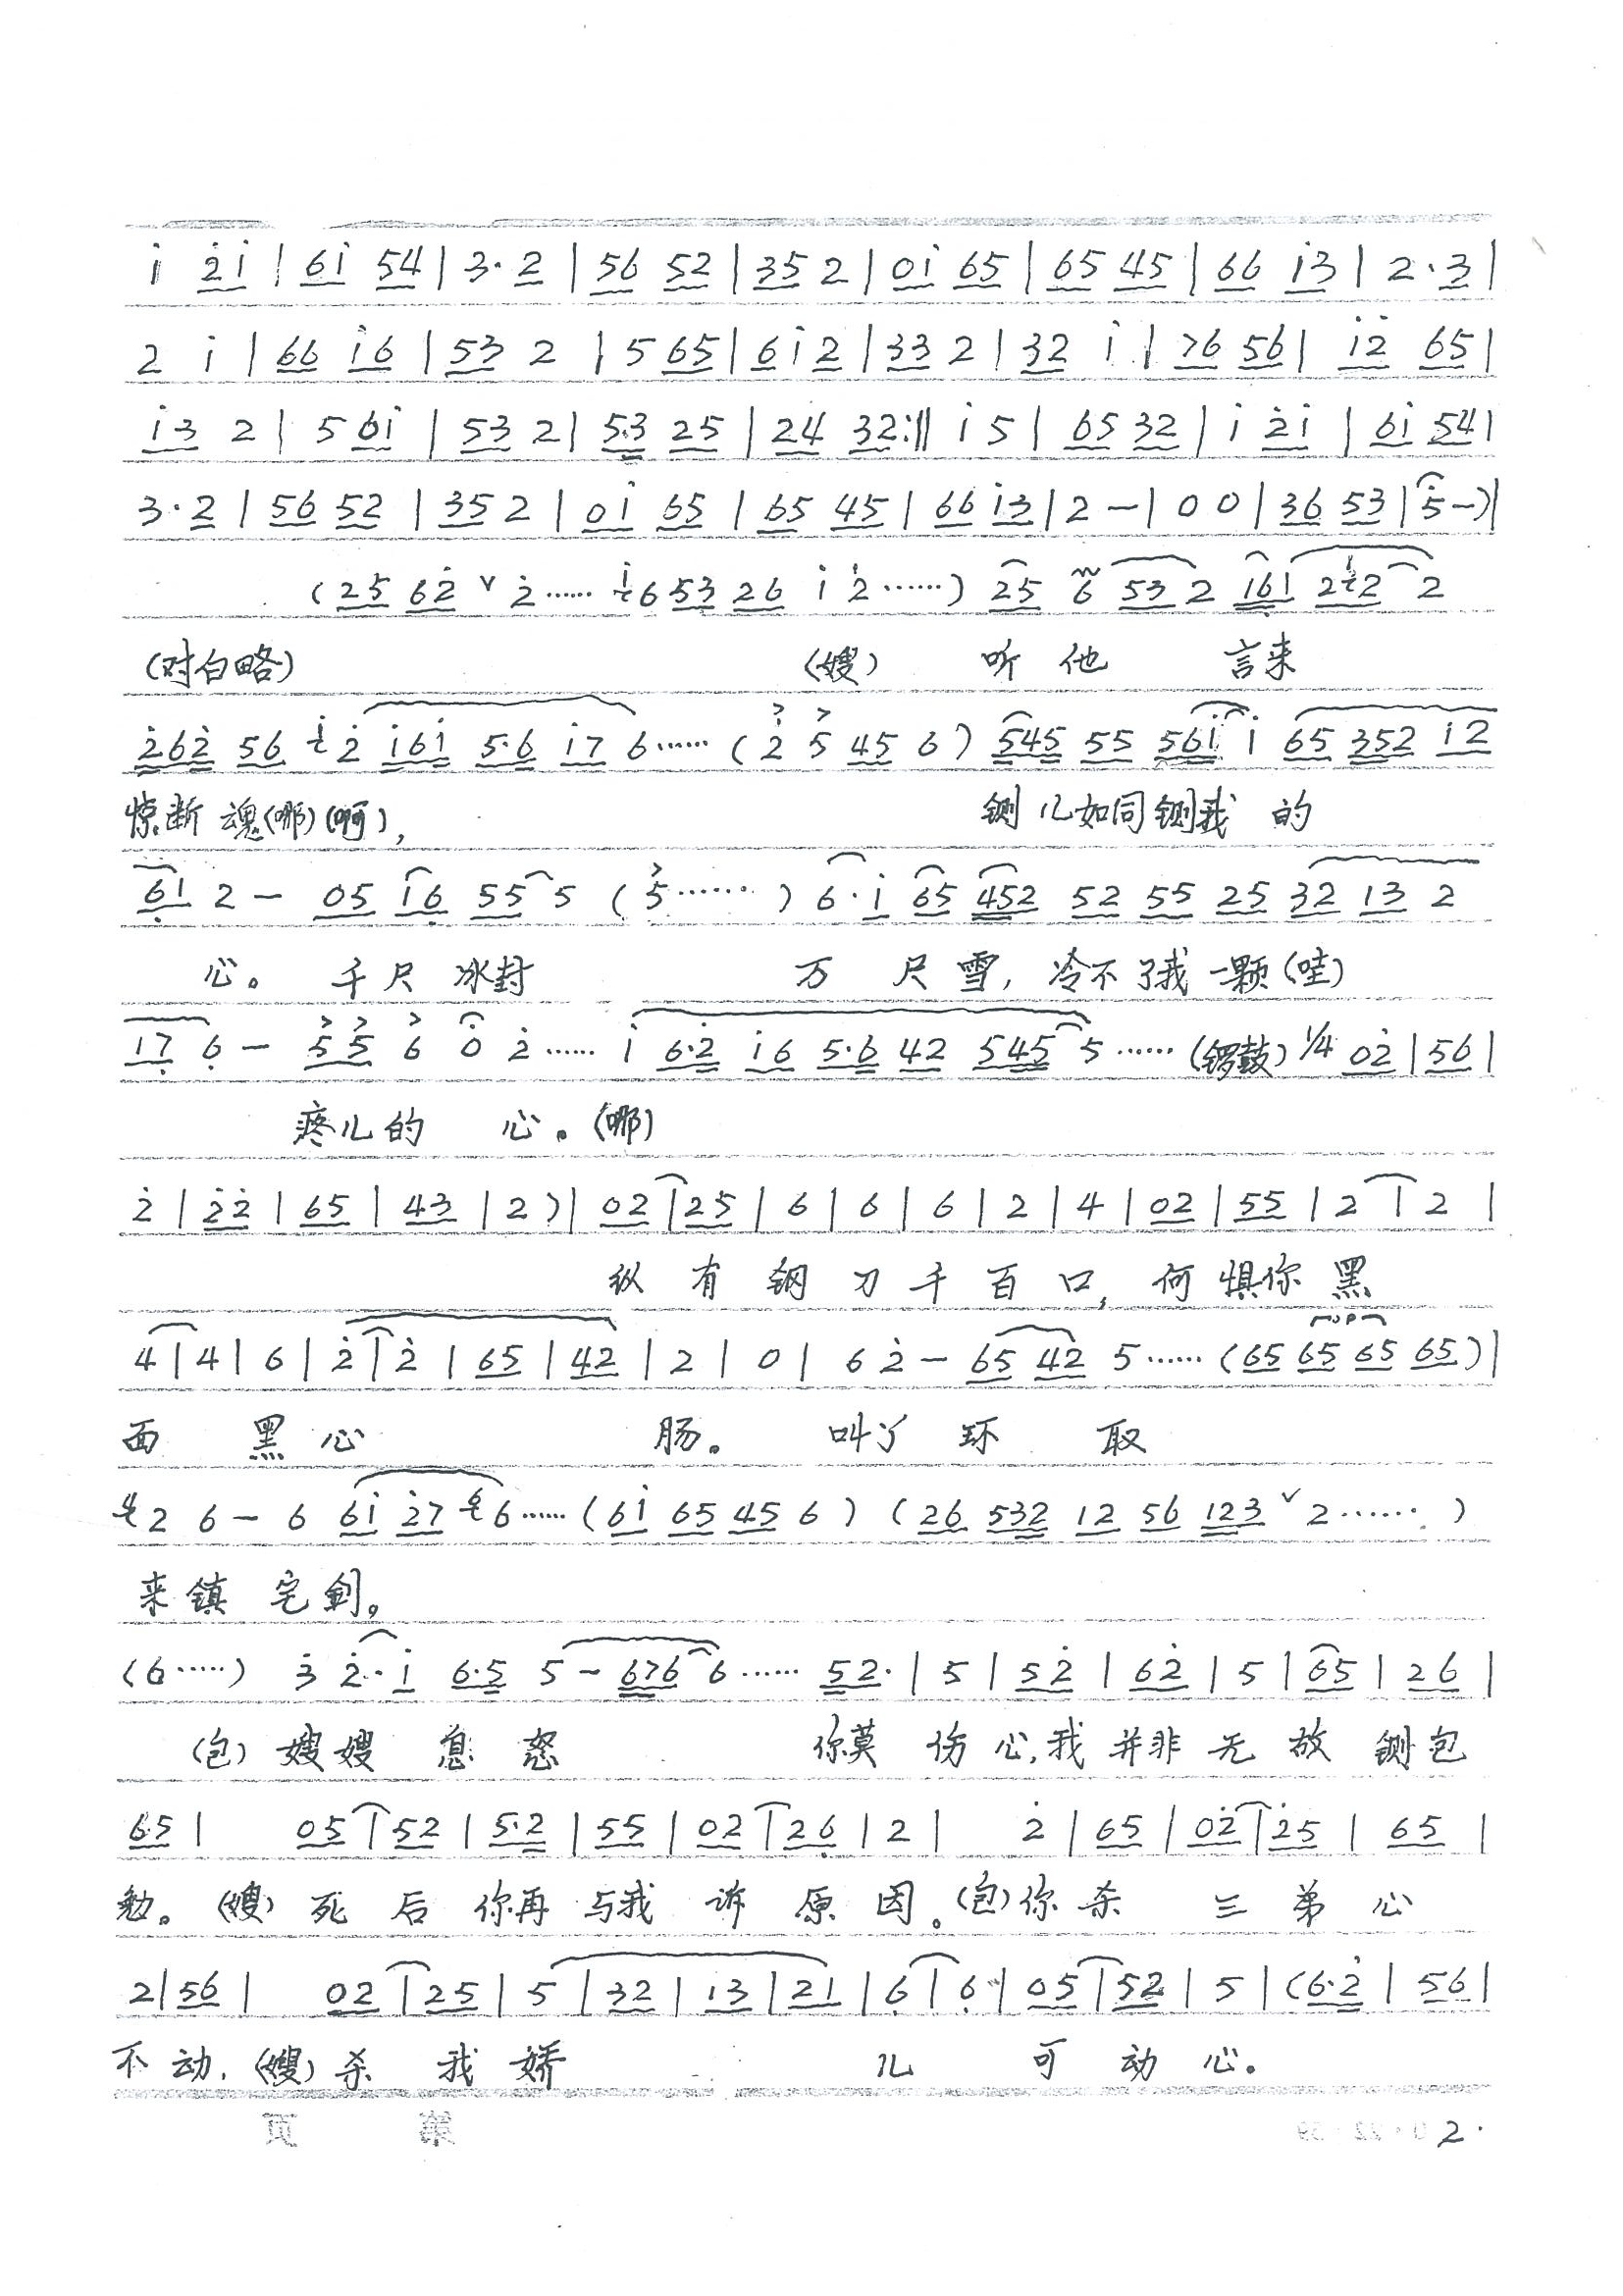 i̇ 2̇i̇ | 6i̇ 54 | 3·2 | 56 52 | 35 2 | 0i̇ 65 | 65 45 | 66 i̇3 | 2·3 |
2 i̇ | 66 i̇6 | 53 2 | 5 65 | 6i̇2 | 33 2 | 32 i̇ | 76 56 | i̇2̇ 65 |
i̇3 2 | 5 6i̇ | 53 2 | 5·3 25 | 24 32 :‖ i̇ 5 | 65 32 | i̇ 2̇i̇ | 6i̇ 54 |
3·2 | 56 52 | 35 2 | 0i̇ 65 | 65 45 | 66 i̇3 | 2 — | 0 0 | 36 53 | 5 —) |
(25 62̇ ∨ 2̇…… i̇6 53 26 i̇ 2̇……) 25 6 53 2 161 2 2 2
(对白略) (嫂) 听他 言来
2̇62̇ 56 i̇ 2̇ i̇6i̇ 5·6 i̇7 6…… (2̇ 5 45 6) 545 55 56i̇ i̇ 65 352 12
惊断魂(哪)(啊), 铡儿如同铡我的
6̣1 2 — 05 16̣ 55 5 (5……) 6·i̇ 65 452 52 55 25 32 13 2
心。 千尺冰封 万尺雪, 冷不了我一颗(哇)
17̣ 6̣ — 55 6 0 2̇…… i̇ 6·2̇ i̇6 5·6 42 545 5……(锣鼓) 1/4 02̇ | 56 |
疼儿的 心。(哪)
2̇ | 2̇2̇ | 65 | 43 | 2) | 02 | 25 | 6 | 6 | 6 | 2 | 4 | 02 | 55 | 2 | 2 |
纵有钢刀千百口, 何惧你黑
4 | 4 | 6 | 2̇ | 2̇ | 65 | 42 | 2 | 0 | 6 2̇ — 65 42 5……(65 65 65 65) |
面 黑心 肠。 叫丫环 取
2 6 — 6 6i̇ 2̇7 6……(6i̇ 65 45 6) (26 532 12 56 123 ∨ 2……)
来镇宅剑。
(6……) 3̇ 2̇·i̇ 6·5 5 — 676 6…… 52· | 5 | 52̇ | 62̇ | 5 | 65 | 26 |
(包) 嫂嫂息怒 你莫伤心,我并非无故铡包
6·5 | 05 | 52 | 5·2 | 55 | 02 | 26̣ | 2 | 2̇ | 65 | 02̇ | 2̇5 | 65 |
勉。(嫂) 死后你再与我诉原因。(包)你杀 三弟心
2 | 56 | 02 | 25 | 5 | 32 | 13 | 21 | 6̣ | 6̣ | 05 | 52 | 5 | (6·2̇ | 56 |
不动, (嫂) 杀我娇 儿可动心。
第 页
2·